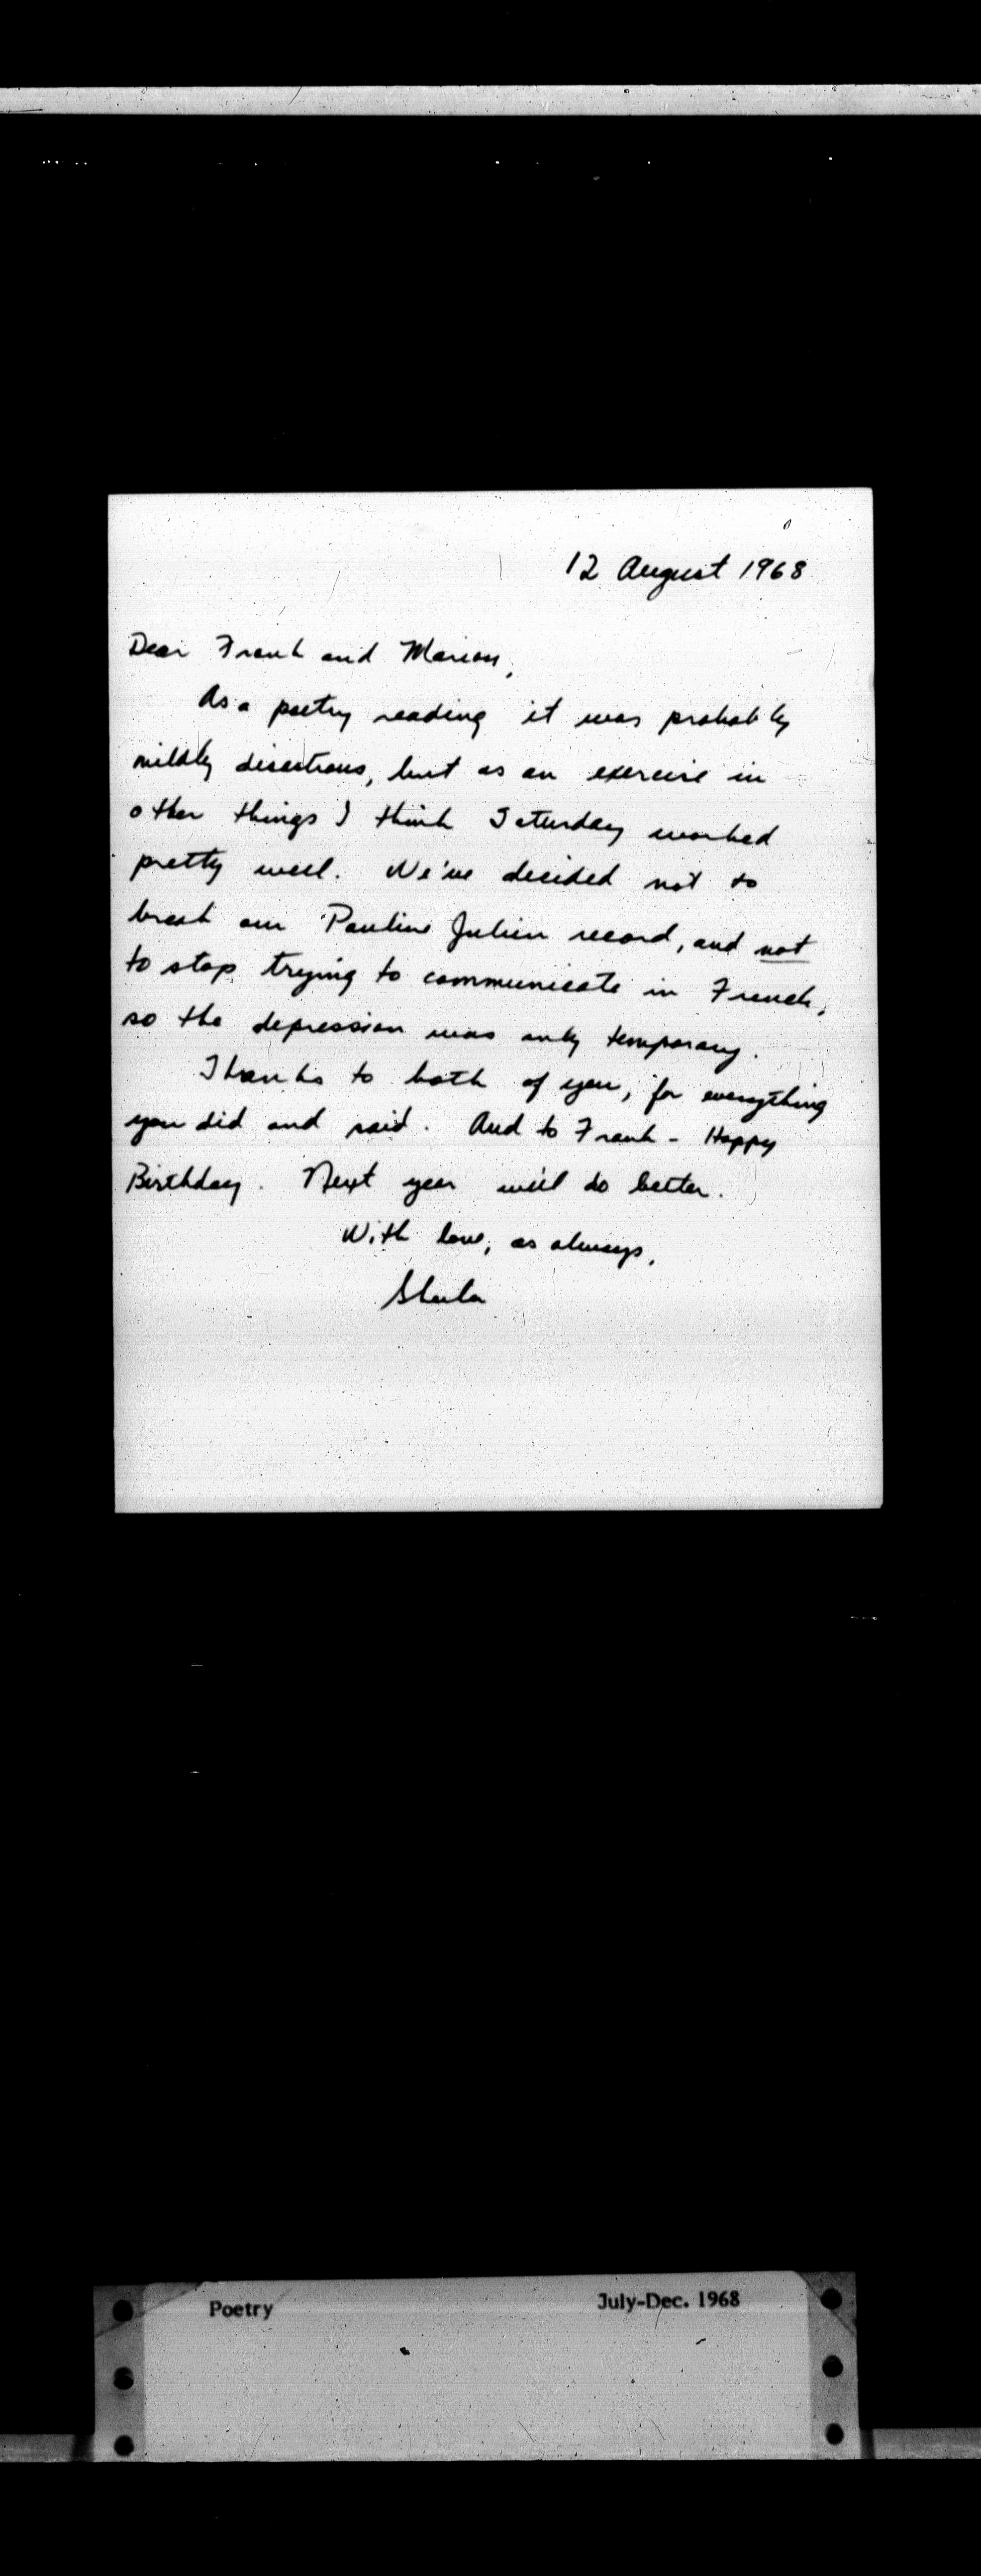 12 August 1968
Dear Frank and Marian,
As a poetry reading it was probably
mildly disastrous, but as an exercise in
other things I think Saturday worked
pretty well. We've decided not to
break our Pauline Julien record, and not
to stop trying to communicate in French,
so the depression was only temporary.
Thanks to both of you, for everything
you did and said. And to Frank - Happy
Birthday. Next year we'll do better.
With love, as always,
Sheila
Poetry July-Dec. 1968